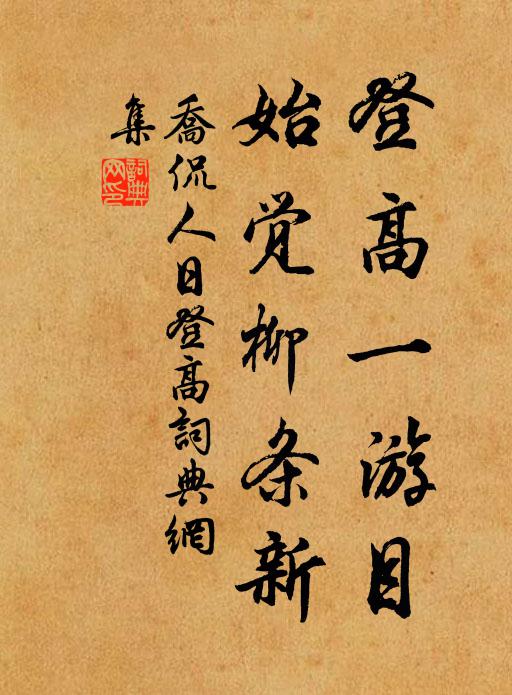 登高一游目
始觉柳条新
喬侃人日登高詞典網
集
詞典
网印